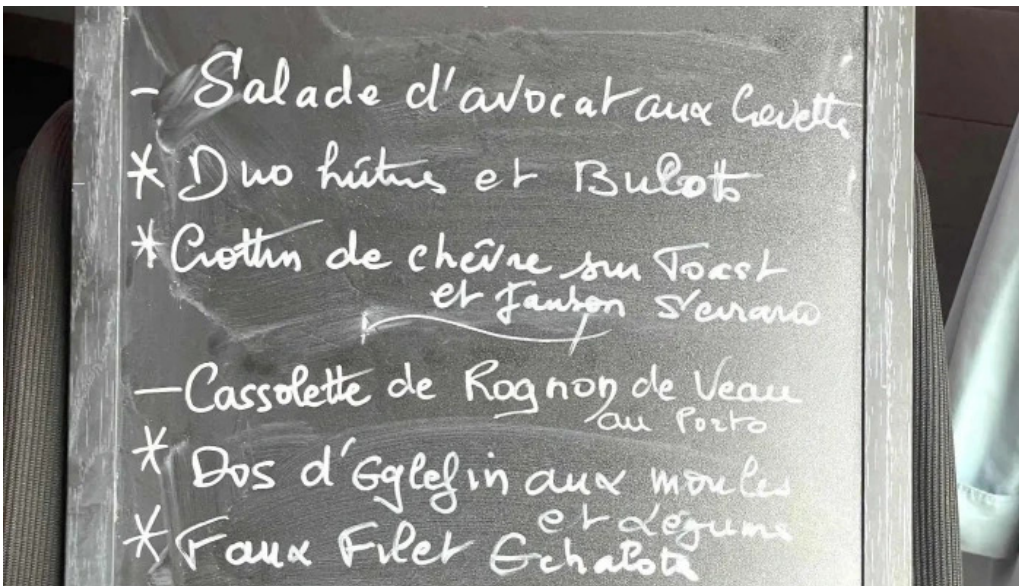 - Salade d'avocat aux Crevette
* Duo huîtres et Bulots
* Crottin de chêvre sur Toast
et Jambon Serrano
- Cassolette de Rognon de Veau
au Porto
* Dos d'Eglefin aux moules
et Légumes
* Faux Filet Echalote